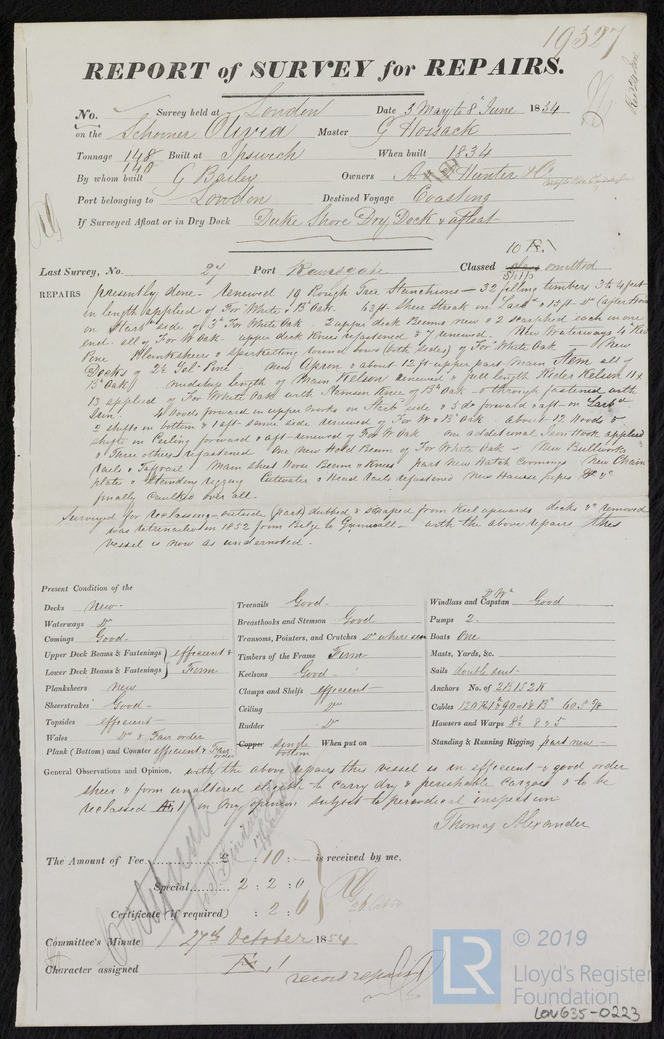 19327
REPORT of SURVEY for REPAIRS.
No. Survey held at London Date 3 May to 8 June 1854
on the Schooner Olivia Master G Hossack
Tonnage 148 Built at Ipswich When built 1834
148
By whom built G Bailey Owners Hunter & Co
Port belonging to London Destined Voyage Coasting
If Surveyed Afloat or in Dry Dock Duke Shore Dry Dock & afloat
10
Last Survey, No. 27 Port Ramsgate Classed omitted
REPAIRS presently done. renewed 10 Rough Tree Stanchions - 32 filling timbers 3 to 4 feet
in length applied of For White & Bk Oak. 63 ft Sheer Streak on Larbd & 15 ft Do (after Hood
on Starbd side of 3in For White Oak 2 upper deck Beams new & 2 scarphed each in one
end all of For W Oak upper deck Knees refastened & 7 renewed. New Waterways 4in Red
Pine Planksheer & Spirketting round bows (both sides) of For White Oak New
Decks of 2½ Yel. Pine. new Apron & about 12 ft upper part main Stem all of
Bk Oak midship length of Main Kelson renewed & full length Rider Kelson 11 x
13 applied of For White Oak with Stemson Knee of Bk Oak & through fastened with
iron. 4 Hoods forward in upper works on Starbd side & 5 do forward & aft on Larbd
2 shifts on bottom & 1 aft same side renewed of For W & Bk Oak about 12 Hoods &
shifts in Ceiling forward & aft renewed of For W Oak one additional Iron Hook applied
& Three others refastened One New Hold Beam of For White Oak New Bullworks
rails & Taffrail Main sheet Horse Beam & Knees part new Hatch Comings New Chain
plates & Standing rigging Cutwater & Head Rails refastened New Hawse pipes &c &c
finally Caulked over all.
Surveyed for reclassing outside (part) dubbed & scraped from Keel upwards decks &c removed
was retreenailed in 1852 from Bilge to Gunwall with the above repairs this
vessel is now as undernoted.
Present Condition of the
Decks New
Waterways Do
Comings Good
Upper Deck Beams & Fastenings } efficient &
Lower Deck Beams & Fastenings } Firm
Planksheers New
Sheerstrakes Good
Topsides efficient
Wales Do & Fair order
Plank (Bottom) and Counter efficient & Fair order
Treenails Good
Breasthooks and Stemson Good
Transoms, Pointers, and Crutches Do where seen
Timbers of the Frame Firm
Keelsons Good
Clamps and Shelfs efficient
Ceiling Do
Rudder Do
Copper single bottom When put on
Windlass and Capstan Good
Pumps 2
Boats One
Masts, Yards, &c.
Sails double suit
Anchors No. of 2B 1S 2K
Cables
Hausers and Warps
Standing & Running Rigging part new
General Observations and Opinion, with the above repairs this vessel is an efficient & good order
sheer & form unaltered eligible to carry dry & perishable cargoes & to be
reclassed Æ 1 in my opinion subject to periodical inspection
Thomas Alexander
The Amount of Fee £ : 10 : is received by me,
Special 2 : 2 : 0
Certificate (if required) : 2 : 6
Committee's Minute 27th October 1854
Character assigned Æ 1
record repairs
LR © 2019
Lloyd's Register
Foundation
LON635-0223